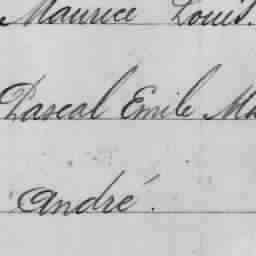 Maurice Louis.
Pascal Emile
André.